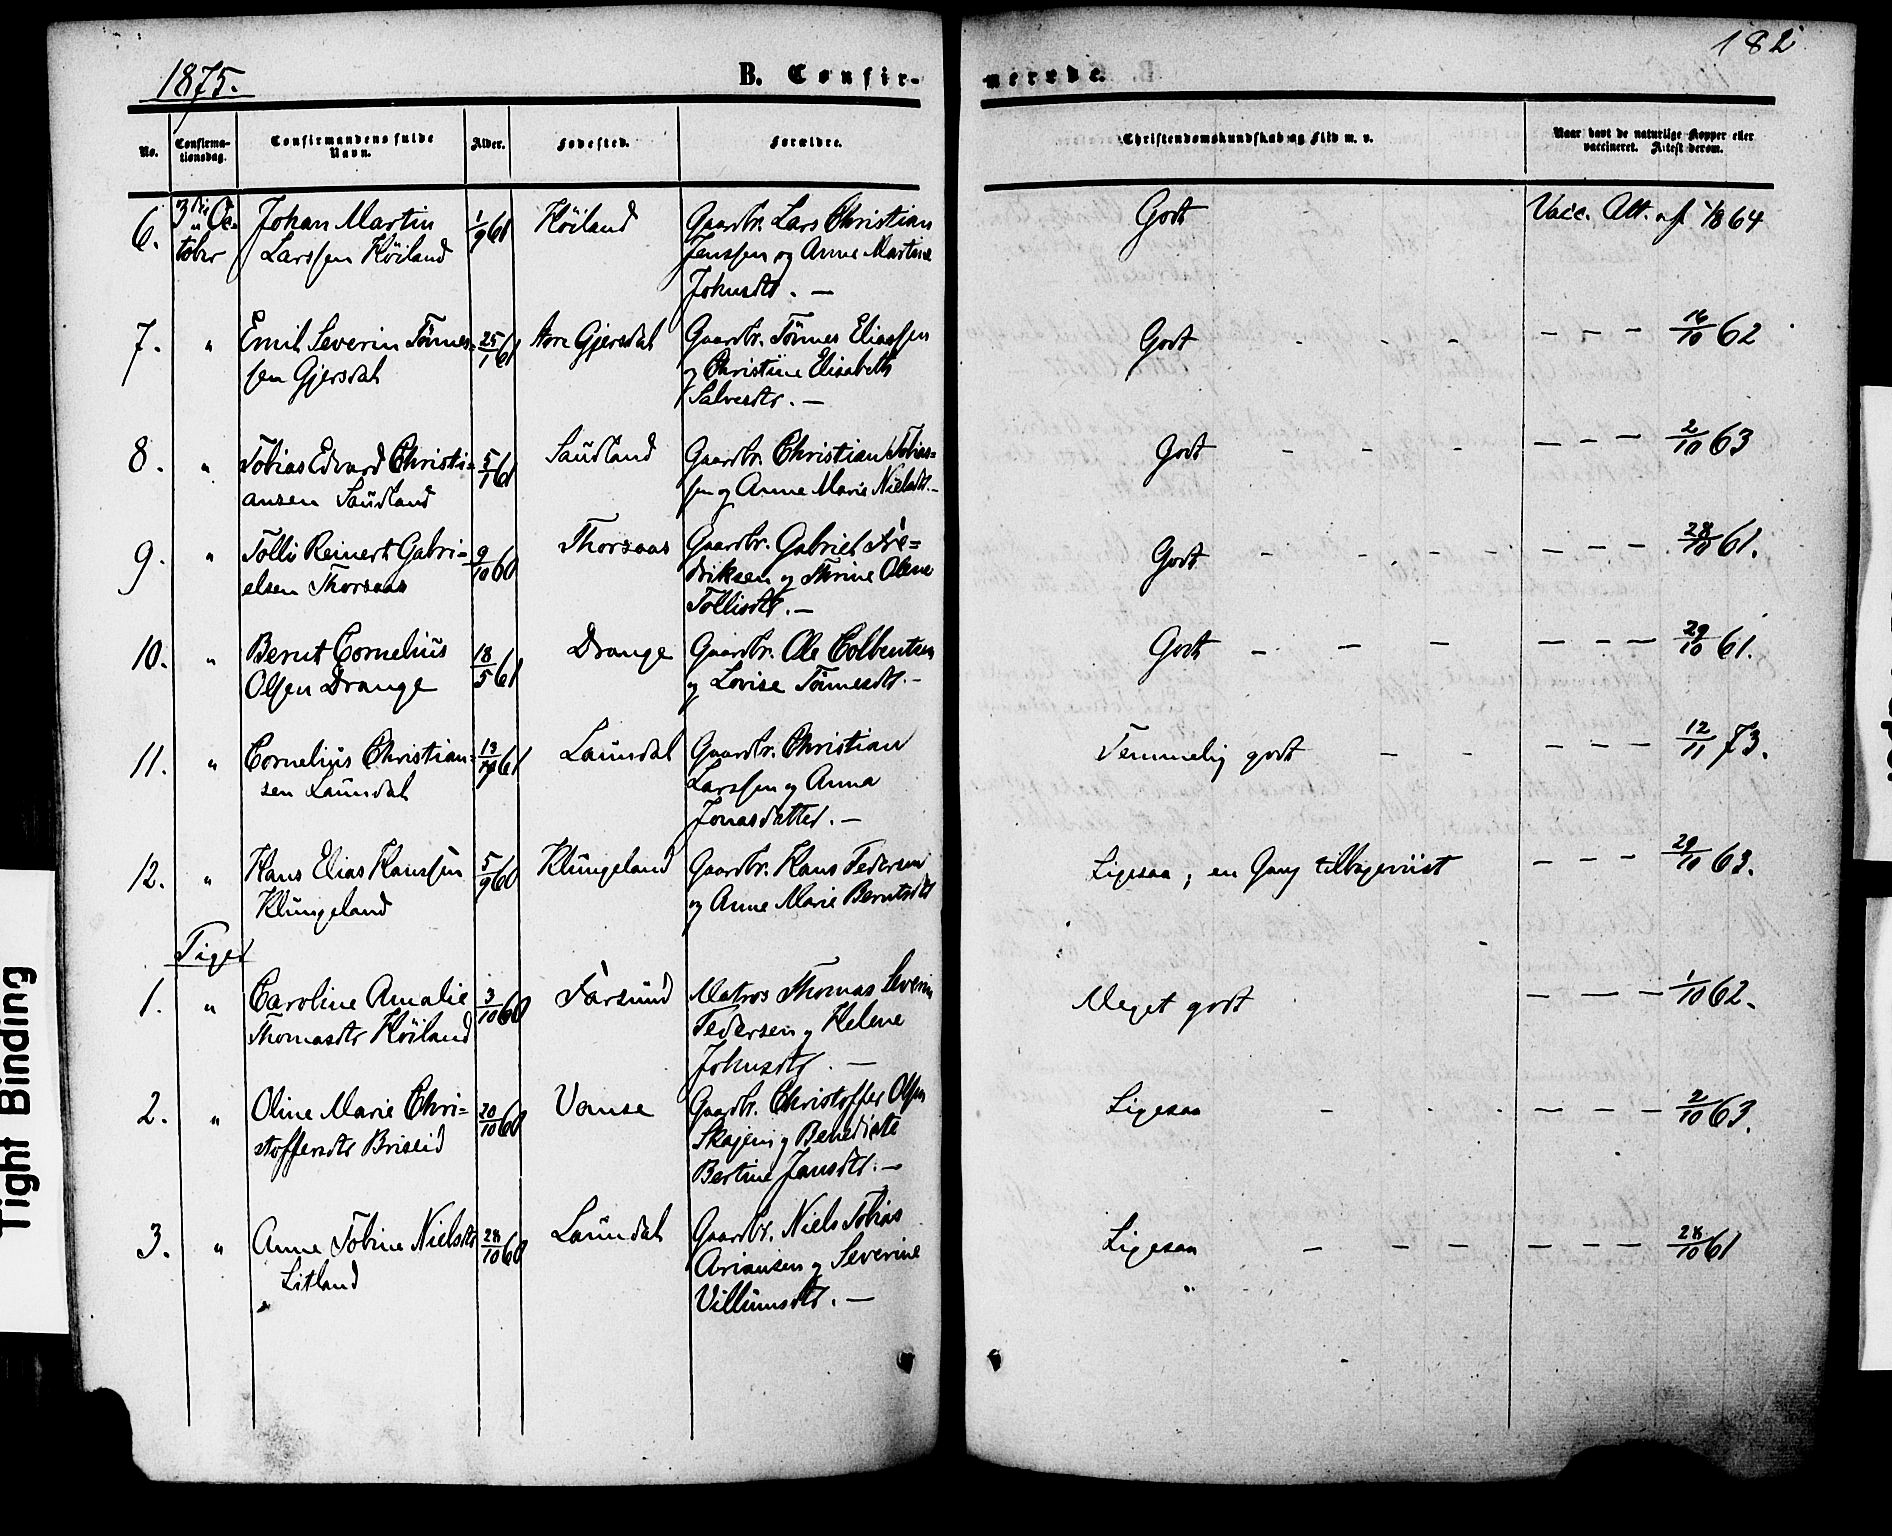 182
1875.
B. Confir-
merede.
No.
Confirma-
tionsdag.
Confirmandens fulde
Navn.
Alder.
Fødested.
Forældre.
Christendomskundskab og Flid m. v.
Naar havt de naturlige Kopper eller
vaccineret. Attest derom.
6. 3die Oc- Johan Martin 1/9 61 Höiland Gaardbr. Lars Christian Godt Vacc. Att. af 1/8 64
tober Larssen Höiland Janssen og Anne Martine
Johnsdtr. —
7. " Emil Severin Tönnes- 25/1 61 Gjersdal Gaardbr. Tönnes Eliassen Godt — — — 16/10 62
sen Gjersdal og Christine Elisabeth
Salvesdtr. —
8. " Tobias Edvard Christi= 5/1 61 Saudland Gaardbr. Christian Tobias= Godt — — — 2/10 63
ansen Saudland sen og Anne Marie Nielsdtr. —
9. " Tollis Reinert Gabri= 9/10 60 Thorsaas Gaardbr. Gabriel Fre= Godt — — — 28/10 61.
elsen Thorsaas driksen og Thrine Olene
Tollisdtr. —
10. " Bernt Cornelius 18/5 61 Drange Gaardbr. Ole Colbentsen Godt — — — 29/10 61.
Olsen Drange og Lovise Tönnesdtr. —
11. " Cornelius Christian= 13/ 61 Laundal Gaardbr. Christian Temmelig godt — — — 12/11 73.
sen Laundal Larssen og Anna
Jonasdatter. —
12. " Hans Elias Hanssen 5/9 60 Klungeland Gaardbr. Hans Pedersen Ligesaa, en Gang tilbageviist — — — 29/10 63.
Klungeland og Anne Marie Berntsdtr
Piger
1. " Caroline Amalie 3/10 60 Farsund Matros Thomas Severin Meget godt — — — 1/10 62.
Thomasdtr Höiland Pedersen og Helene
Johnsdtr. —
2. " Oline Marie Chri= 20/10 60 Vanse Gaardbr. Christoffer Olsen Ligesaa — — — 2/10 63.
stoffersdtr Briseid Skajem og Benedicte
Bertine Jansdtr. —
3. " Anne Tobine Nielsdtr 28/10 60 Laundal Gaardbr. Niels Tobias Ligesaa — — — 28/10 61
Litland Ariansen og Severine
Villumsdtr. —
Tight Binding